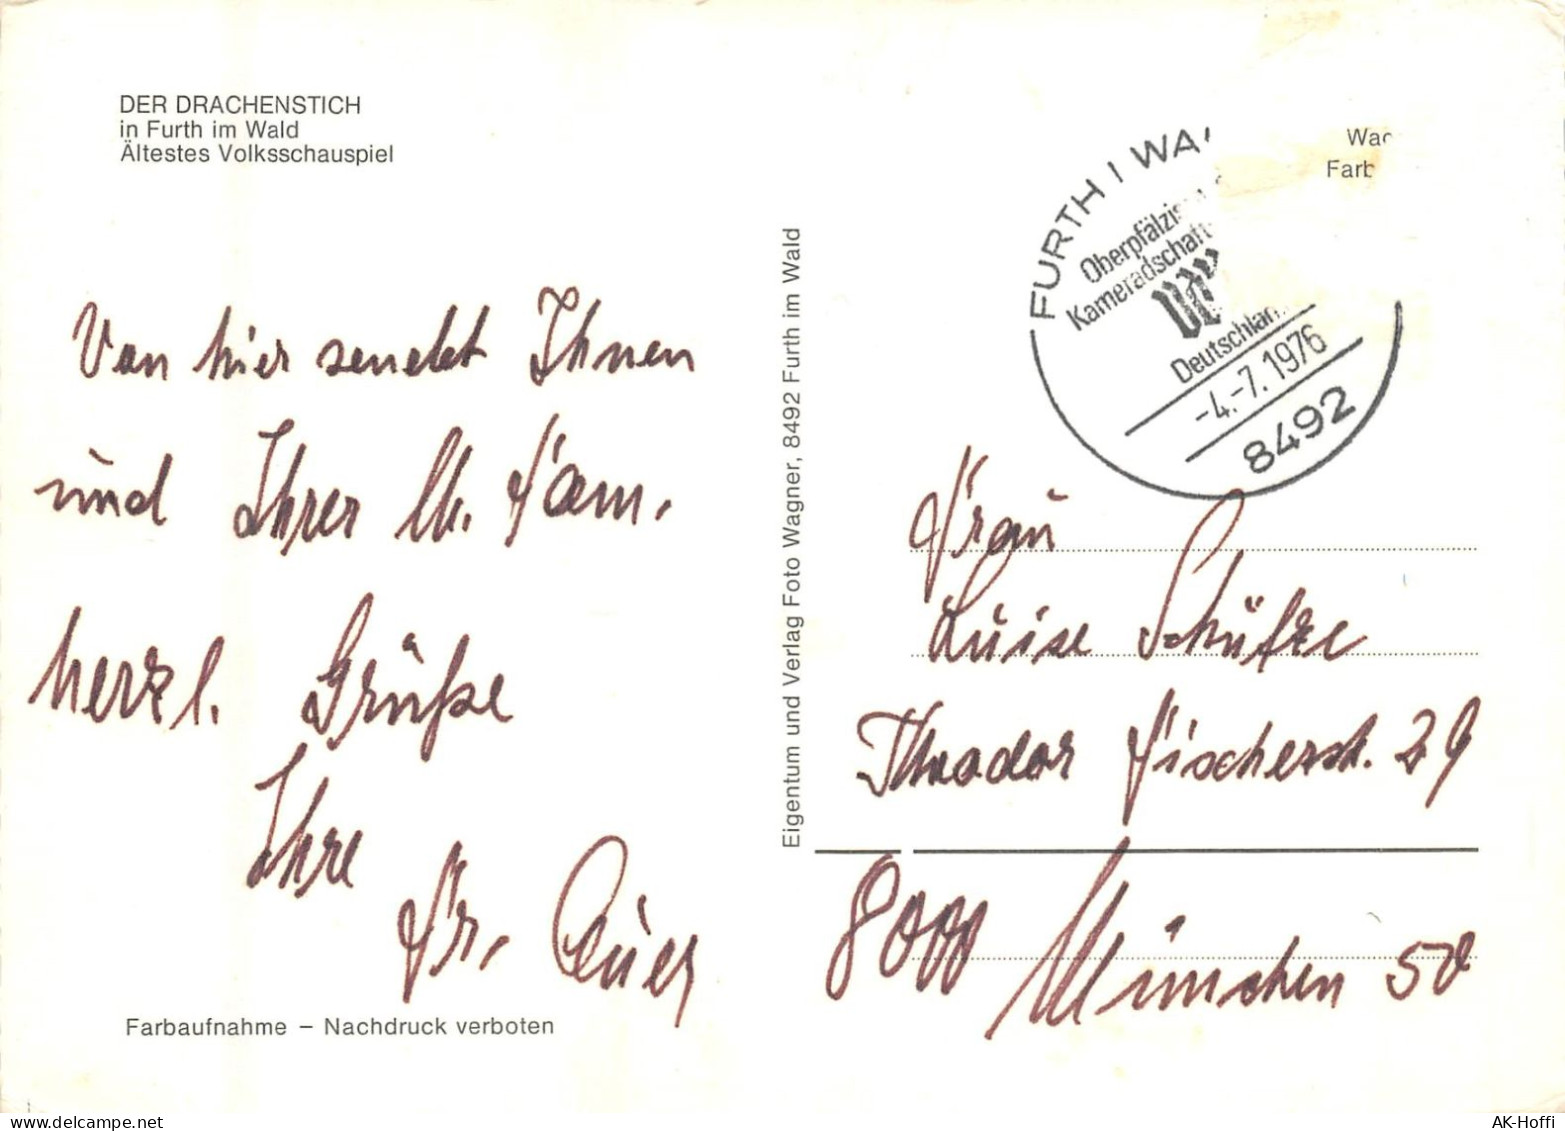 DER DRACHENSTICH
in Furth im Wald
Ältestes Volksschauspiel
Von hier sendet Ihnen
und Ihrer lb. Fam.
herzl. Grüße
Ihre
Fr. Auer
Farbaufnahme – Nachdruck verboten
Eigentum und Verlag Foto Wagner, 8492 Furth im Wald
FURTH I WA
Kameradschaft
-4.-7.1976
8492
Frau
Luise Schütze
Theodor Fischerst. 29
8000 München 50
www.delcampe.net
AK-Hoffi